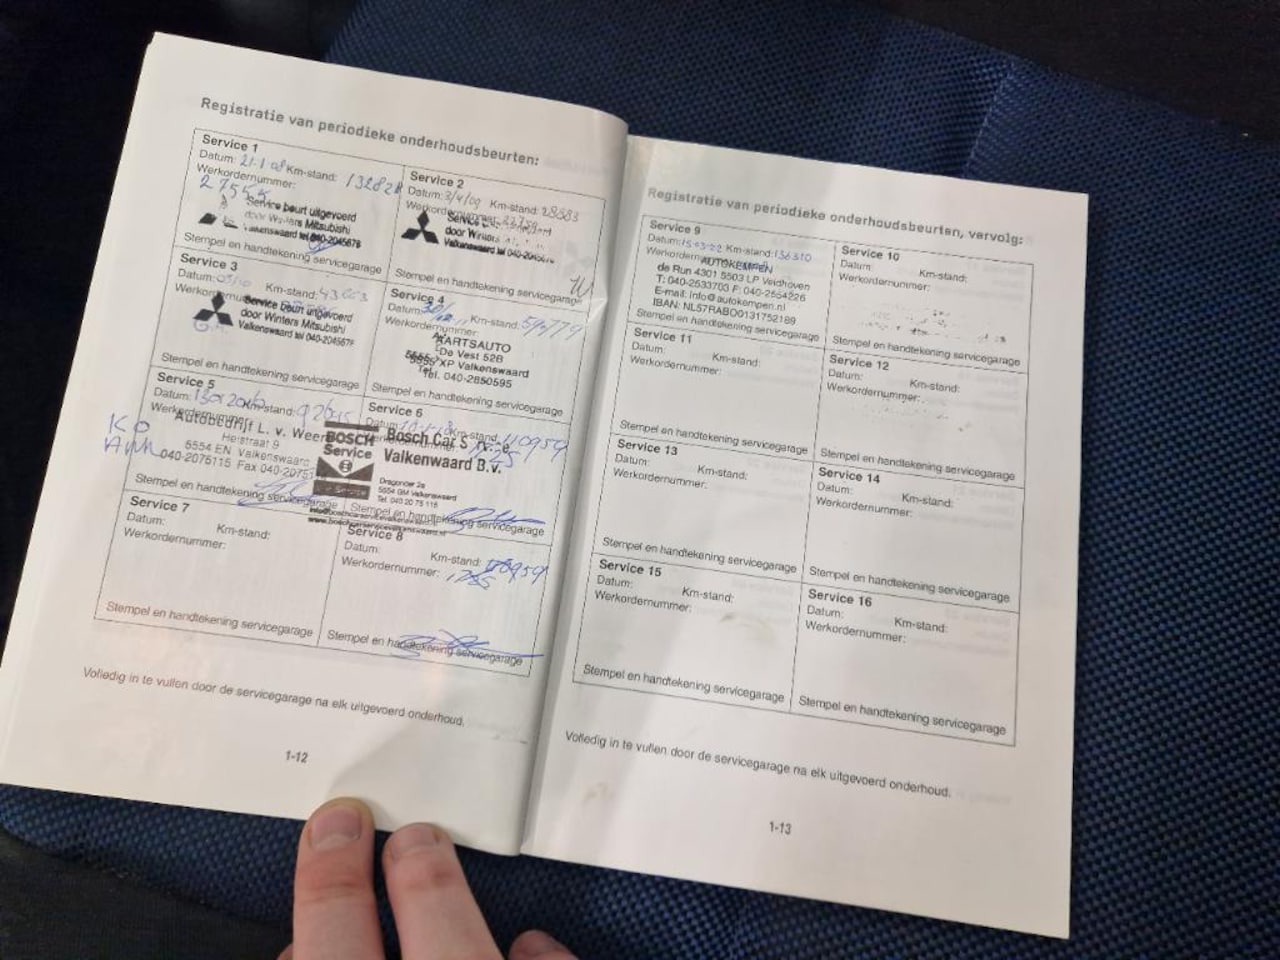 Registratie van periodieke onderhoudsbeurten:
Service 1
Datum: 21-1-08 Km-stand: 13282
Werkordernummer:
Service beurt uitgevoerd
door Winters Mitsubishi
Valkenswaard tel 040-2045678
Stempel en handtekening servicegarage
Service 2
Datum: 3/4/09 Km-stand: 28583
Werkordernummer:
Service
door Winters
Valkenswaard tel 040-
Stempel en handtekening servicegarage
Service 3
Datum: Km-stand:
Service beurt uitgevoerd
door Winters Mitsubishi
Valkenswaard tel 040-2045678
Stempel en handtekening servicegarage
Service 4
Datum: Km-stand:
Werkordernummer:
AARTSAUTO
De Vest 52B
5555 XP Valkenswaard
Tel. 040-2850595
Stempel en handtekening servicegarage
Service 5
Datum: Km-stand:
Werkordernummer:
Autobedrijf L. v. Weer
Heistraat 9
5554 EN Valkenswaard
040-2075115 Fax 040-2075
Stempel en handtekening servicegarage
Service 6
Datum: Km-stand: 110959
BOSCH
Service
Bosch Car Service
Valkenwaard B.v.
Dragonder 2a
5554 GM Valkenswaard
Tel. 040 20 75 115
Stempel en handtekening servicegarage
Service 7
Datum: Km-stand:
Werkordernummer:
Stempel en handtekening servicegarage
Service 8
Datum: Km-stand: 110959
Werkordernummer:
Stempel en handtekening servicegarage
Volledig in te vullen door de servicegarage na elk uitgevoerd onderhoud.
1-12
Registratie van periodieke onderhoudsbeurten, vervolg:
Service 9
Datum: 15-03-22 Km-stand: 136310
Werkordernummer:
AUTOKEMPEN
de Run 4301 5503 LP Veldhoven
T: 040-2533703 F: 040-2554226
E-mail: info@autokempen.nl
IBAN: NL57RABO0131752189
Stempel en handtekening servicegarage
Service 10
Datum: Km-stand:
Werkordernummer:
Stempel en handtekening servicegarage
Service 11
Datum: Km-stand:
Werkordernummer:
Stempel en handtekening servicegarage
Service 12
Datum: Km-stand:
Werkordernummer:
Stempel en handtekening servicegarage
Service 13
Datum: Km-stand:
Werkordernummer:
Stempel en handtekening servicegarage
Service 14
Datum: Km-stand:
Werkordernummer:
Stempel en handtekening servicegarage
Service 15
Datum: Km-stand:
Werkordernummer:
Stempel en handtekening servicegarage
Service 16
Datum: Km-stand:
Werkordernummer:
Stempel en handtekening servicegarage
Volledig in te vullen door de servicegarage na elk uitgevoerd onderhoud.
1-13